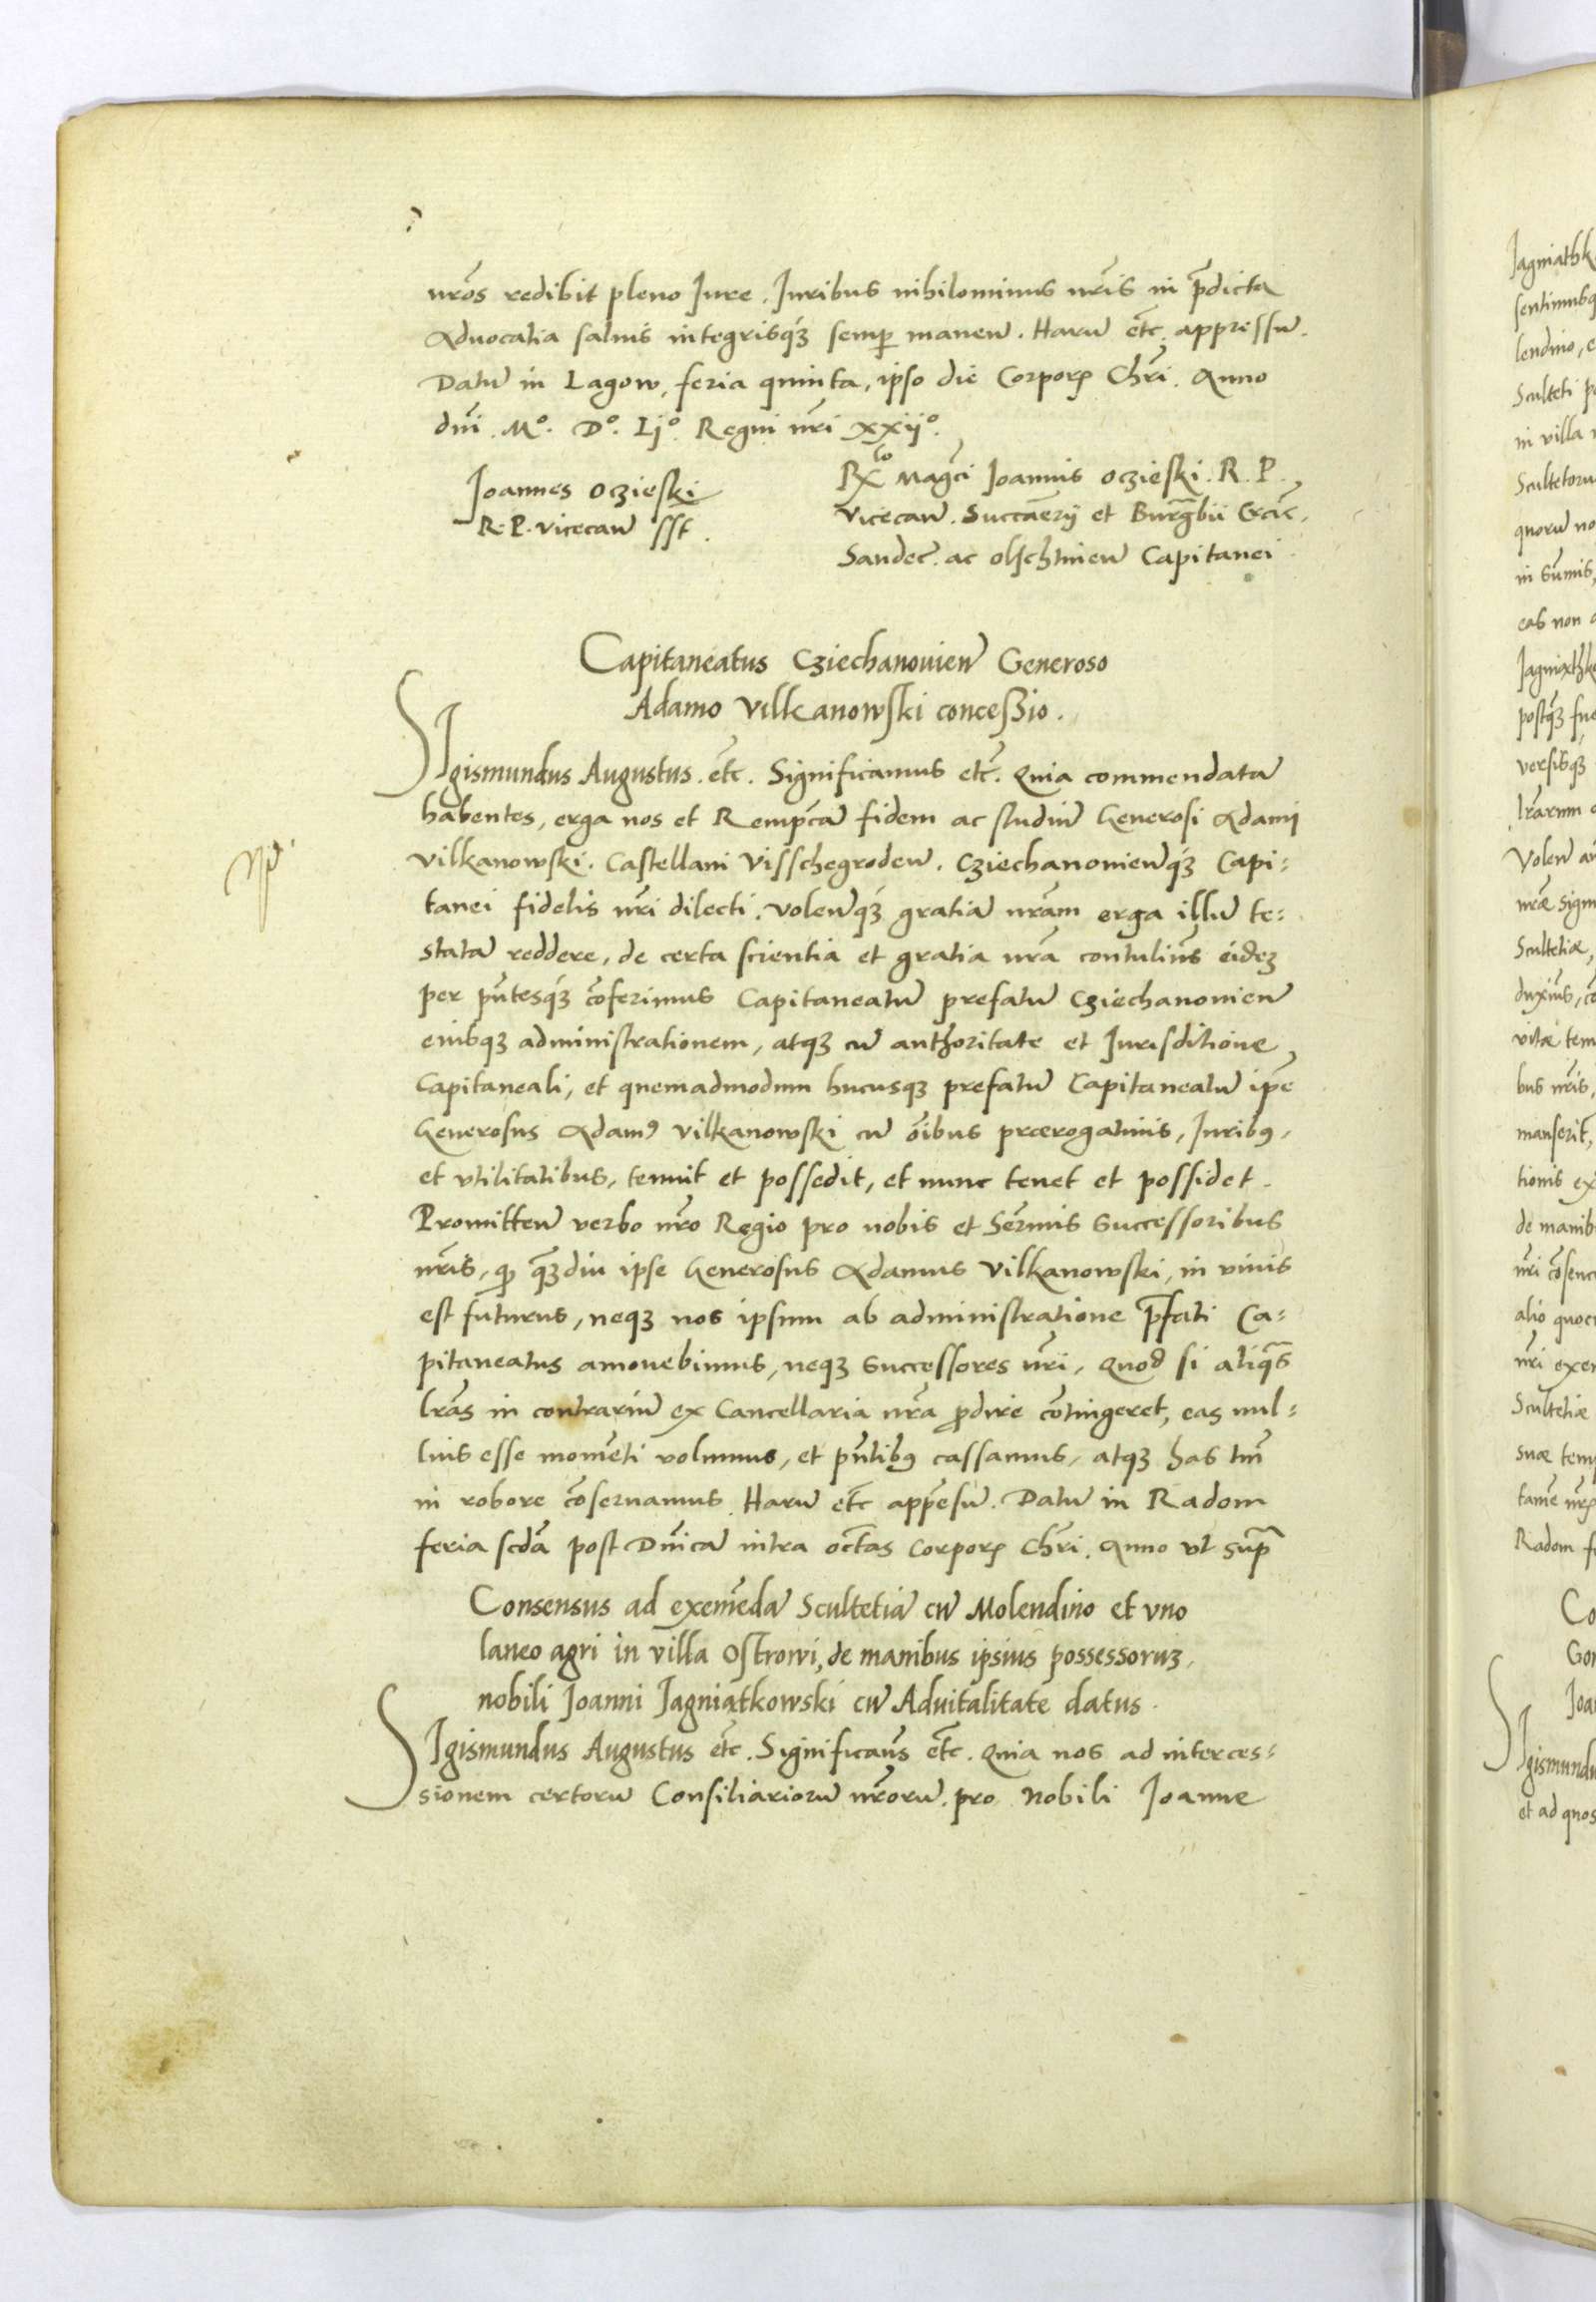 nr̃os redibit pleno Jure. Juribus nihilominus nr̃is in p̃dicta
Aduocatia saluis integrisq́ꝫ semꝑ maneñ. Harũ etc̃. appressũ.
Datũ in Lagow, feria quinta, ipso die Corporꝭ Chr̃i. Anno
dñi. Mº. Dº. Lijº. Regni nr̃i xxiijº.
Joannes Oczieski
R. P. vicecañ sst̃.
Rx̃ Mag̃ci Joannis Oczieski. R. P.
Vicecañ. Succam̃erij et Burg̃bii Crac̃.
Sandec̃. ac Olschtineñ Capitanei
Capitaneatus Cziechanouieñ Generoso
Adamo Vilkanowski concessio.
SIgismundus Augustus. etc̃. Significamus etc̃. Quia commendatã
habentes, erga nos et Remp̃cã fidem ac studiũ Generosi Adami
Vilkanowski. Castellani Visschegrodeñ. Cziechanouieñq́ꝫ Capi=
tanei fidelis nr̃i dilecti. Voleñq́ꝫ gratiã nr̃am erga illũ te=
statã reddere, de certa scientia et gratia nr̃a contulim̃s eideꝫ
per pñtesq́ꝫ cõferimus Capitaneatũ prefatũ Cziechanouieñ
eiusqꝫ administrationem, atqꝫ cũ authoritate et Jurisditione
Capitaneali, et quemadmodum hucusqꝫ prefatũ Capitaneatũ ip̃e
Generosus Adamꝰ Vilkanowski cũ õibus prærogatiuis, Juribꝰ,
et vtilitatibus, tenuit et possedit, et nunc tenet et possidet.
Promitteñ verbo nr̃o Regio pro nobis et Ser̃mis Successoribus
nr̃is, ꝙ q̃ꝫdiu ipse Generosus Adamus Vilkanowski, in viuis
est futurus, neqꝫ nos ipsum ab administratione p̃fati Ca=
pitaneatus amouebimus, neqꝫ Successores nr̃i, Quod si aliq̃s
lr̃as in contrariũ ex Cancellaria nr̃a ꝓdire cõtingeret, eas nul=
lius esse mom̃eti volumus, et pñtibꝰ cassamus, atqꝫ has tm̃
in robore cõseruamus. Harũ etc̃ app̃esũ. Datũ in Radom
feria scd̃a post Dñicã intra oct̃as Corporꝭ Chr̃i. Anno vt sup̃
Consensus ad exem̃edã Scultetiã cũ Molendino et vno
laneo agri in villa Ostrowi, de manibus ipsius possessoruꝫ,
nobili Joanni Jagniątkowski cũ Aduitalitate datus.
SIgismundus Augustus etc̃. Significam̃s etc̃. Quia nos ad interces=
sionem certorũ Consiliariorũ nr̃orũ. pro Nobili Joanne